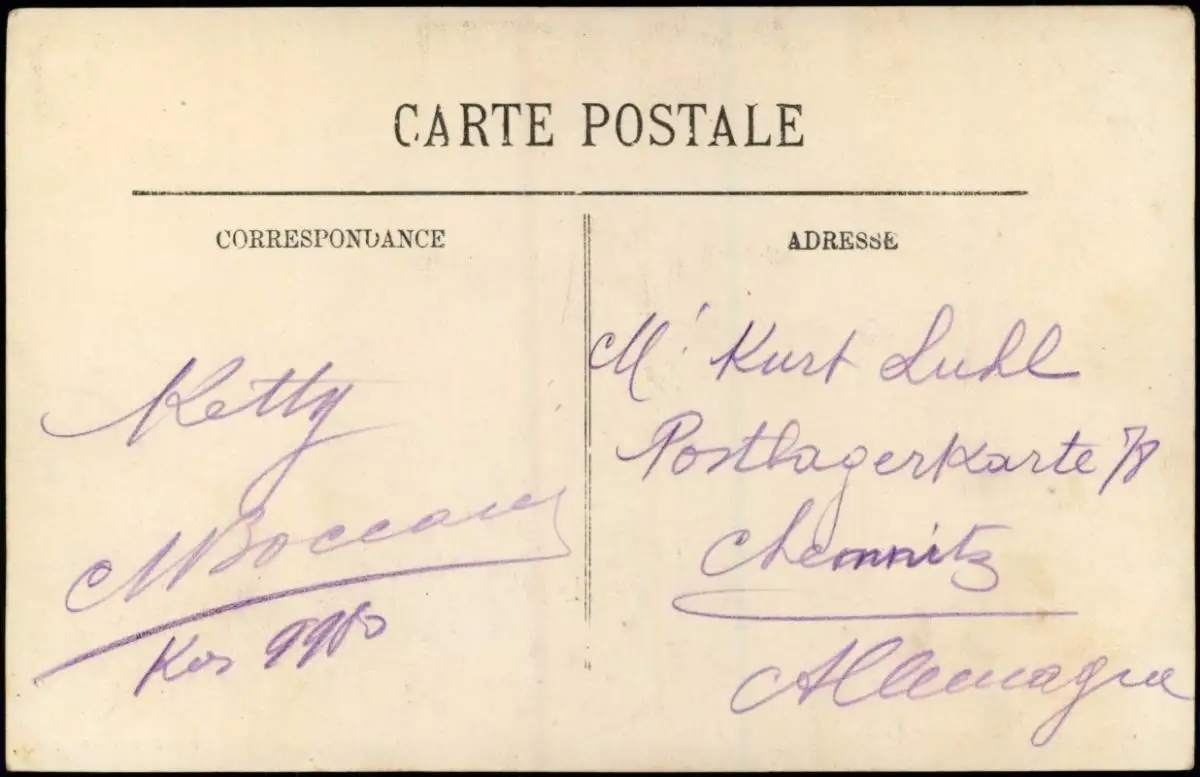 CARTE POSTALE
CORRESPONDANCE
ADRESSE
Ketty
Kos
Mr Kurt Luhl
Postlagerkarte 78
Chemnitz
Allemagne